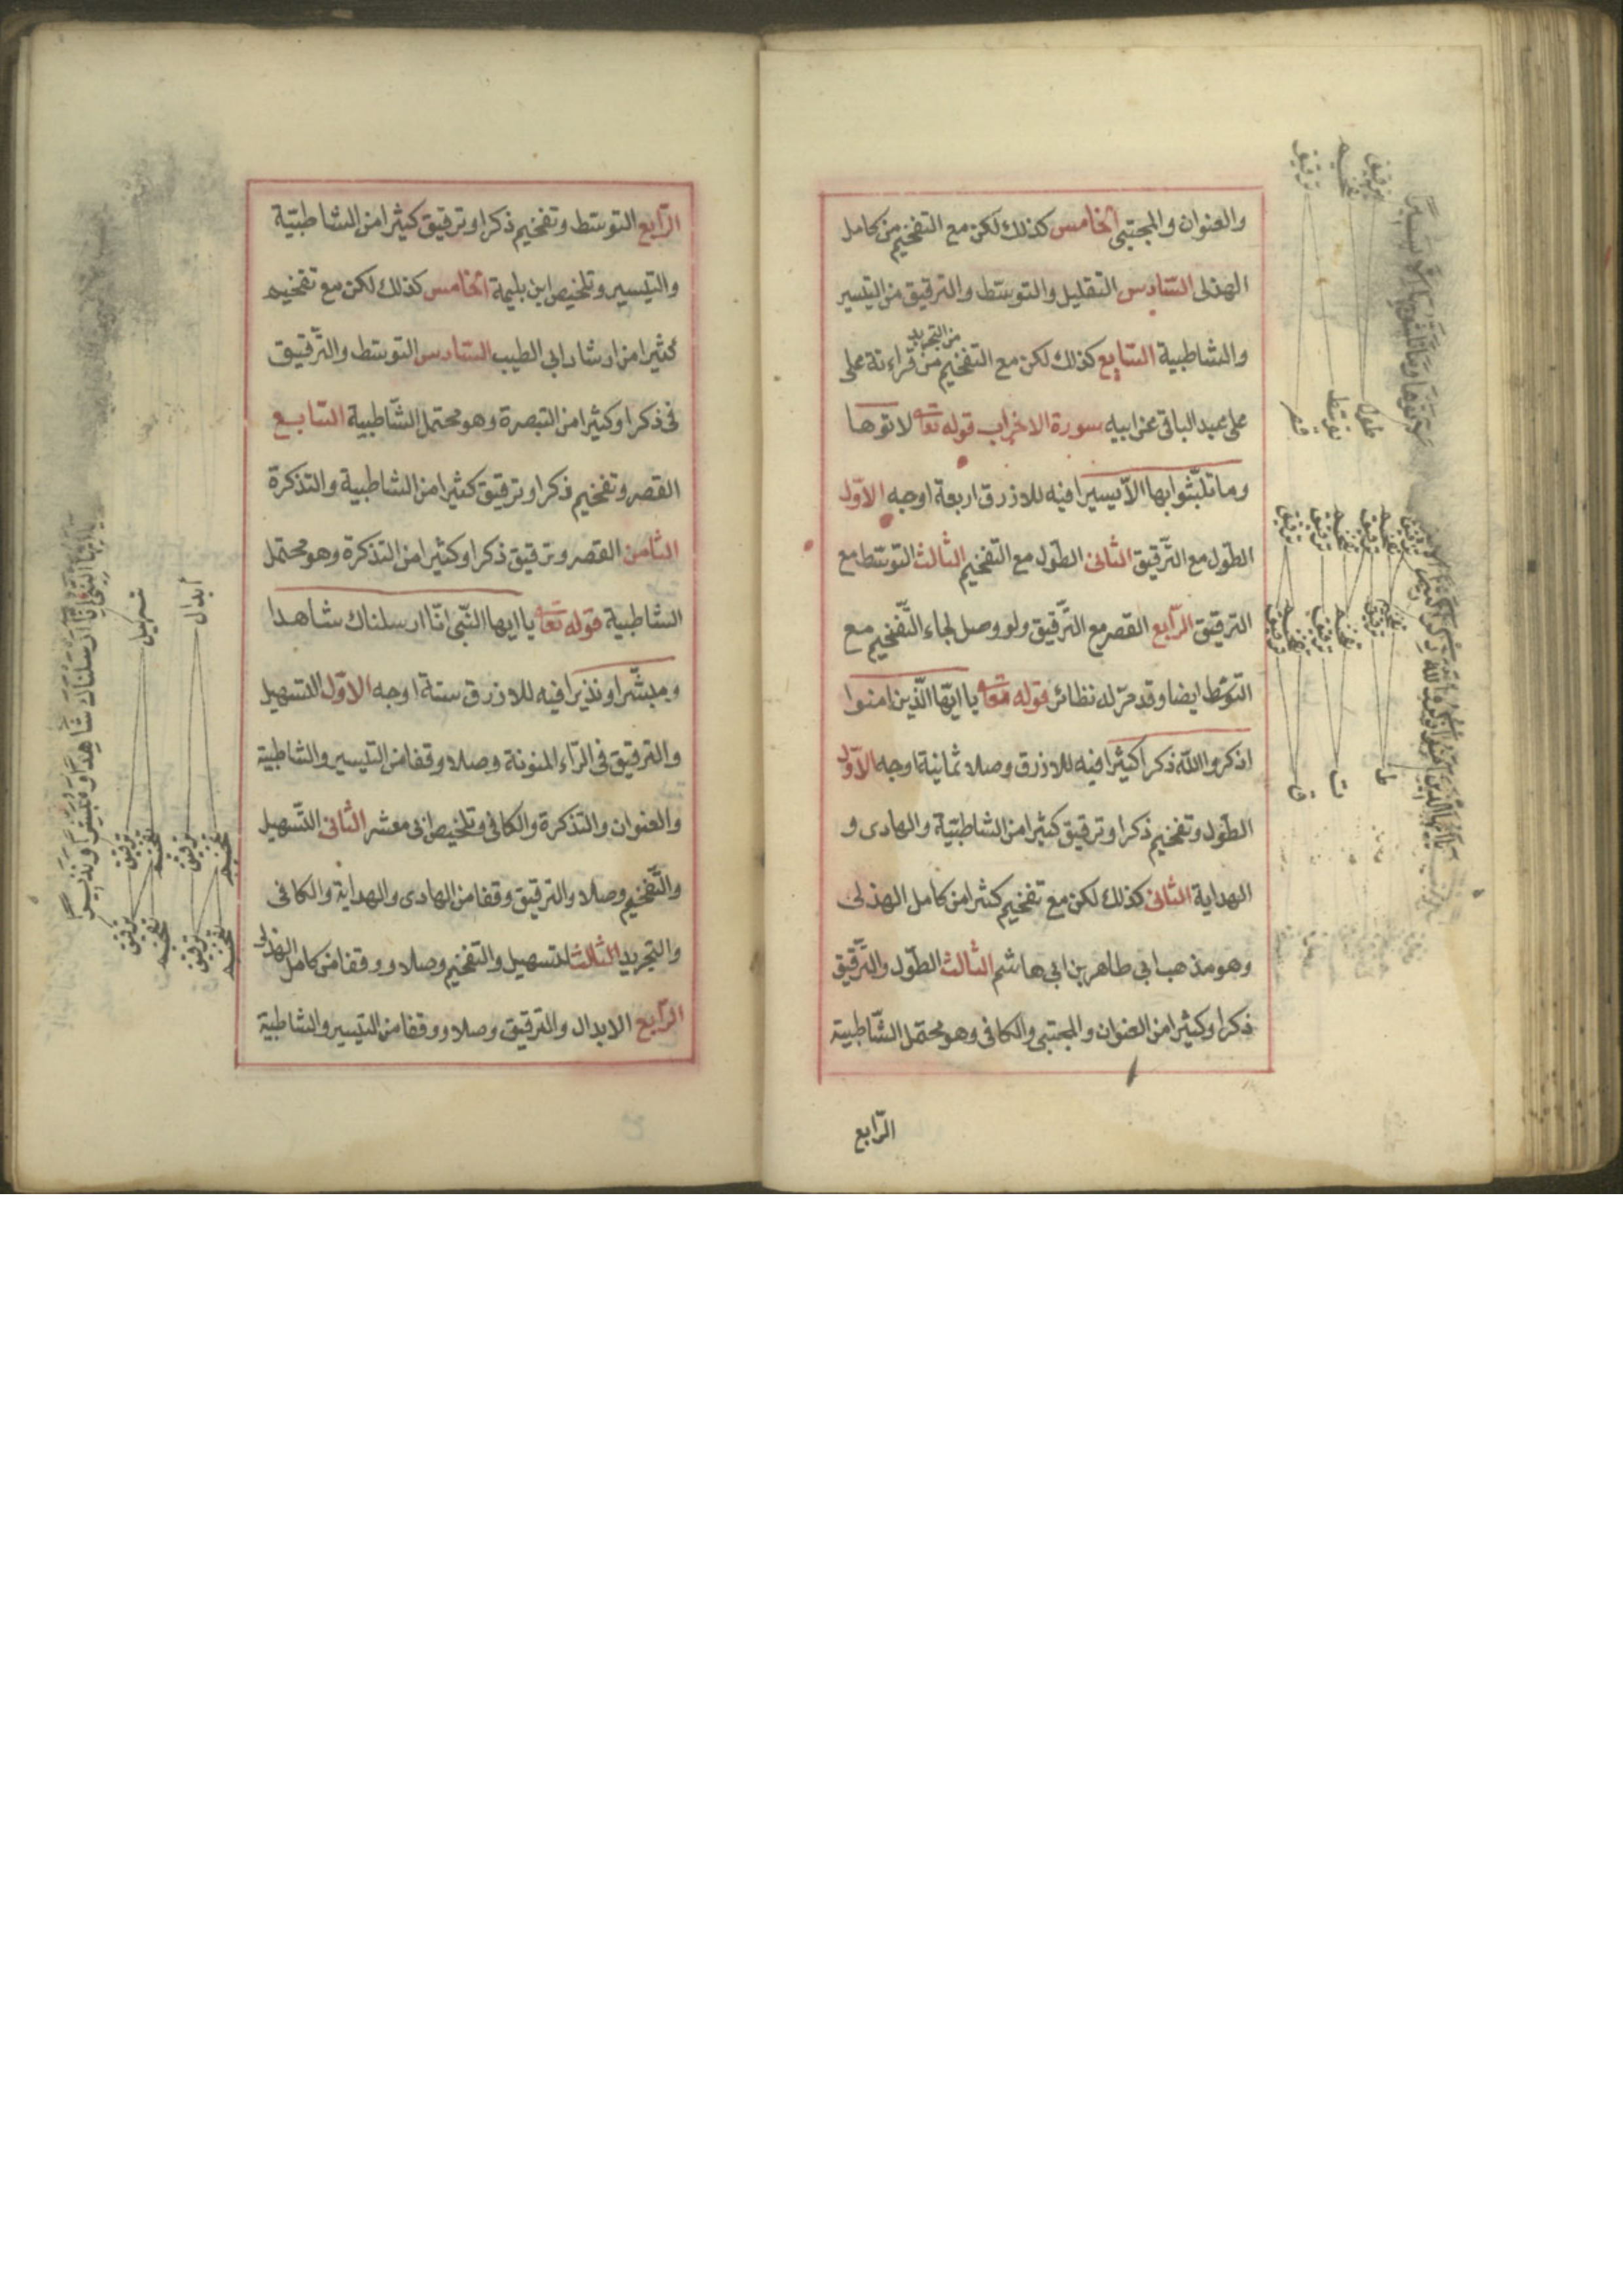 والعنوان والمجتبى الخامس كذلك لكن مع التفخيم من كامل
الهذلى السّادس التقليل والتوسّط والترقيق من التيسير
والشاطبية السّابع كذلك لكن مع التفخيم من قراءته على
من التجريد
على عبد الباقى عن ابيه سورة الاحزاب قوله تعا لاتوها
وما تلبّثوا بها الاّ يسيرا فيه للازرق اربعة اوجه الاوّل
الطّول مع التّرقيق الثانى الطّول مع التفخيم الثالث التوسّط مع
الترقيق الرّابع القصر مع التّرقيق ولو وصل لجاء التّفخيم مع
التوسّط ايضا وقد مرّ له نظائر قوله تعا يا ايّها الّذين امنوا
اذكروا اللّه ذكرا كثيرا فيه للازرق وصلا ثمانية اوجه الاوّل
الطّول وتفخيم ذكرا وترقيق كثيرا من الشاطبيّة والهادى و
الهداية الثانى كذلك لكن مع تفخيم كثيرا من كامل الهذلى
وهو مذهب ابى طاهر بن ابى هاشم الثالث الطّول والتّرقيق
ذكرا وكثيرا من العنوان والمجتبى والكافى وهو محتمل الشّاطبية
الرّابع
ترقيق
تفخيم
ترقيق
طول
توسّط
قصر
الرّابع التوسّط وتفخيم ذكرا وترقيق كثيرا من الشاطبيّة
والتيسير وتلخيص ابن بليمة الخامس كذلك لكن مع تفخيم
كثيرا من ارشاد ابي الطيب السّادس التوسّط والتّرقيق
فى ذكرا وكثيرا من التبصرة وهو محتمل الشّاطبية السّابع
القصر وتفخيم ذكرا وترقيق كثيرا من الشاطبية والتذكرة
الثامن القصر وترقيق ذكرا وكثيرا من التذكرة وهو محتمل
الشّاطبية قوله تعا يا ايها النّبى انّا ارسلناك شاهدا
ومبشّرا ونذيرا فيه للازرق ستة اوجه الاوّل التسهيل
والترقيق فى الرّاء المنونة وصلا ووقفا من التيسير والشاطبية
والعنوان والتذكرة والكافى وتلخيص ابى معشر الثّانى التّسهيل
والتّفخيم وصلا والترقيق وقفا من الهادى والهداية والكافى
والتجريد الثالث التسهيل والتفخيم وصلا ووقفا من كامل الهذلى
الرّابع الابدال والترقيق وصلا ووقفا من التيسير والشاطبية
يَا أَيُّهَا النَّبِيُّ إِنَّا أَرْسَلْنَاكَ شَاهِدًا وَمُبَشِّرًا وَنَذِيرًا
تسهيل
أبدال
ترقيق
تفخيم
ترقيق
تفخيم
ترقيق
تفخيم
ترقيق
تفخيم